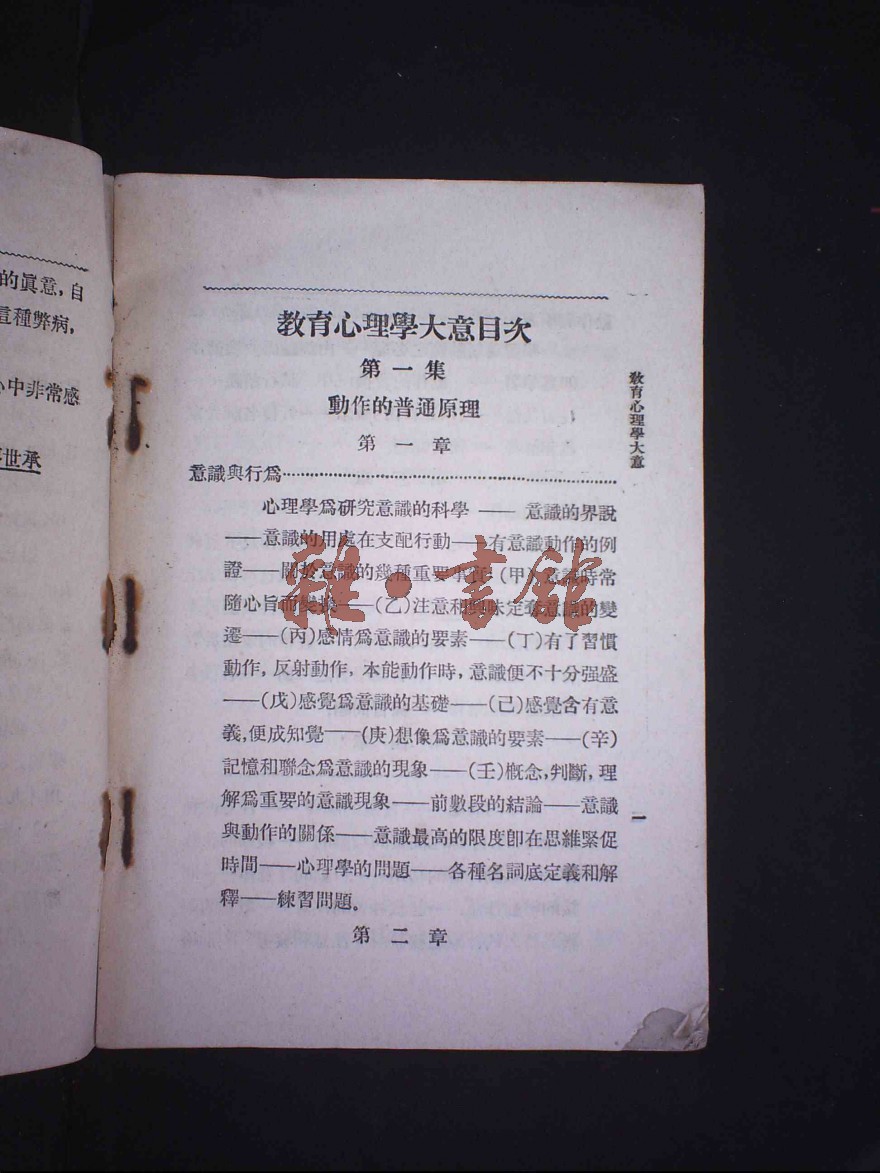 的眞意,自
這種弊病,
心中非常感
世承
教育心理學大意目次
第一集
動作的普通原理
第一章
意識與行爲
心理學爲研究意識的科學——意識的界說
——意識的用處在支配行動——有意識動作的例
證——關於意識的幾種重要事實:(甲)意識時常
隨心旨而變換——(乙)注意和興味定奪意識的變
遷——(丙)感情爲意識的要素——(丁)有了習慣
動作,反射動作,本能動作時,意識便不十分强盛
——(戊)感覺爲意識的基礎——(己)感覺含有意
義,便成知覺——(庚)想像爲意識的要素——(辛)
記憶和聯念爲意識的現象——(壬)概念,判斷,理
解爲重要的意識現象——前數段的結論——意識
與動作的關係——意識最高的限度卽在思維緊促
時間——心理學的問題——各種名詞底定義和解
釋——練習問題。
第二章
教育心理學大意
一
雜·書館